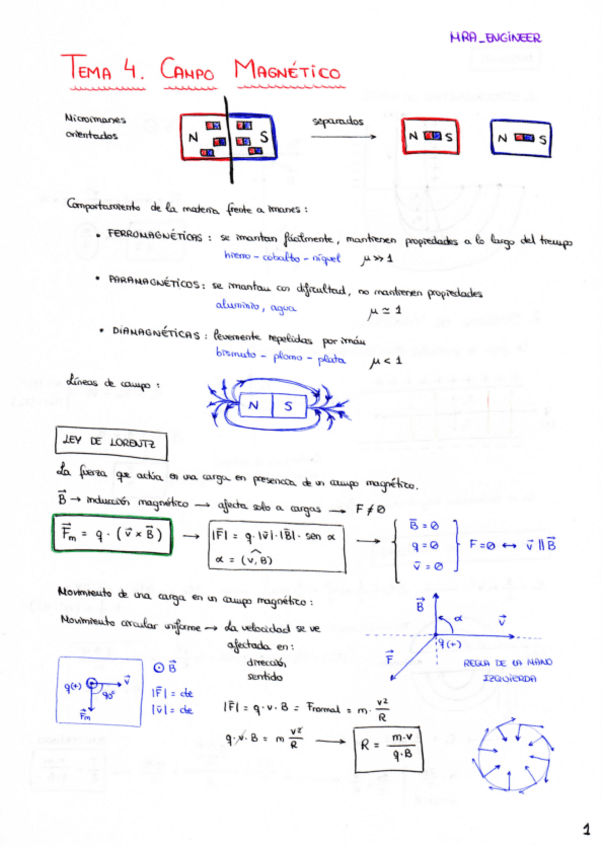 MRA_ENGINEER
TEMA 4. CAMPO MAGNÉTICO
Microimanes orientados
N S
separados
N S
N S
Comportamiento de la materia frente a imanes:
• FERROMAGNÉTICAS: se imantan fácilmente, mantienen propiedades a lo largo del tiempo
hierro - cobalto - níquel μ >> 1
• PARAMAGNÉTICOS: se imantan con dificultad, no mantienen propiedades
aluminio, agua μ ≃ 1
• DIAMAGNÉTICAS: levemente repelidas por imán
bismuto - plomo - plata μ < 1
Líneas de campo:
N S
LEY DE LORENTZ
La fuerza que actúa en una carga en presencia de un campo magnético.
B⃗ → inducción magnético → afecta solo a cargas → F ≠ 0
F⃗m = q · (v⃗ × B⃗) → |F⃗| = q·|v⃗|·|B⃗|· sen α
α = (v⃗, B⃗)
B⃗ = 0
q = 0
v⃗ = 0
F = 0 ↔ v⃗ || B⃗
Movimiento de una carga en un campo magnético:
Movimiento circular uniforme → La velocidad se ve
afectada en:
dirección
sentido
B⃗
α
v⃗
q(+)
F⃗
REGLA DE LA MANO
IZQUIERDA
q(+) v⃗
90°
F⃗m
⊙ B⃗
|F⃗| = cte
|v⃗| = cte
|F⃗| = q · v · B = Fnormal = m · v²/R
q · v · B = m v²/R → R = m·v/q·B
1